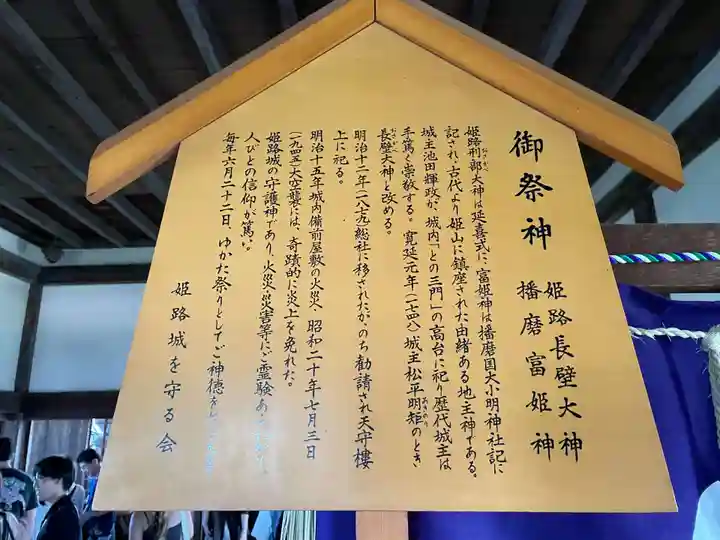 御祭神
姫路長壁大神
播磨富姫神
姫路刑部大神は延喜式に、富姫神は播磨国大小明神社記に
記され、古代より姫山に鎮座された由緒ある地主神である。
城主池田輝政が、城内「との三門」の高台に祀り歴代城主は
手篤く崇敬する。寛延元年(一七四八)城主松平明矩のとき
長壁大神と改める。
明治十二年(一八七九)総社に移されたが、のち勧請され天守楼
上に祀る。
明治十五年城内備前屋敷の火災・昭和二十年七月三日
(一九四五)大空襲には、奇蹟的に炎上を免れた。
姫路城の守護神であり、火災・災害等にご霊験あ
人びとの信仰が篤い。
毎年六月二十二日、ゆかた祭りとしてご神徳を
姫路城を守る会